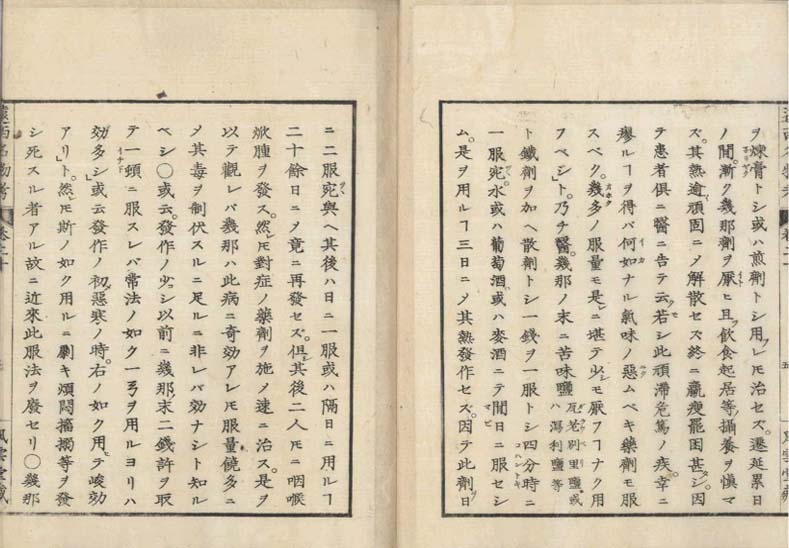 ヲ煉膏トシ或ハ煎劑トシ用フレ𪜈治セズ。遷延累日
ノ間。漸ク幾那劑ヲ厭ヒ且飲食起居等攝養ヲ愼マ
ズ。其熱逾頑固ニ〆解散セズ終ニ羸瘦罷困甚タシ。因
テ患者俱ニ醫ニ告テ云若シ此頑滯危篤ノ疾。幸ニ
瘳ルヿヲ得バ何如ナル氣味ノ惡ムベキ藥劑モ服
スベク。幾多ノ服量モ是ニ堪テ少シモ厭フヿナク用
フベシト。乃チ醫。幾那ノ末ニ苦味鹽
別里鹽或
ハ瀉利鹽等
ト鐵劑ヲ加ヘ散劑トシ一錢ヲ一服トシ四分時ニ
一服宛水或ハ葡萄酒或ハ麥酒ニテ間日ニ服セシ
ム。是ヲ用ルヿ三日ニ〆其熱發作セズ。因テ此劑日
ニ二服宛與ヘ其後ハ日ニ一服或ハ隔日ニ用ルヿ
二十餘日ニ〆竟ニ再發セズ。但其後二人𪜈ニ咽喉
焮腫ヲ發ス。然レ𪜈對症ノ藥劑ヲ施〆速ニ治ス。是ヲ
以テ觀レバ幾那ハ此病ニ奇効アレ𪜈服量饒多ニ
〆其毒ヲ制伏スルニ足ルニ非レバ効ナシト知ル
ベシ〇或云。發作ノ少シ以前ニ幾那末二錢許ヲ取
テ一頓ニ服スレバ常法ノ如ク一弓ヲ用ルヨリハ
効多シ。或云發作ノ初惡寒ノ時。右ノ如ク用テ峻効
アリト。然レ𪜈斯ノ如ク用ルニ劇キ煩悶搐搦等ヲ發
シ死スル者アル故ニ近來此服法ヲ廢セリ〇幾那